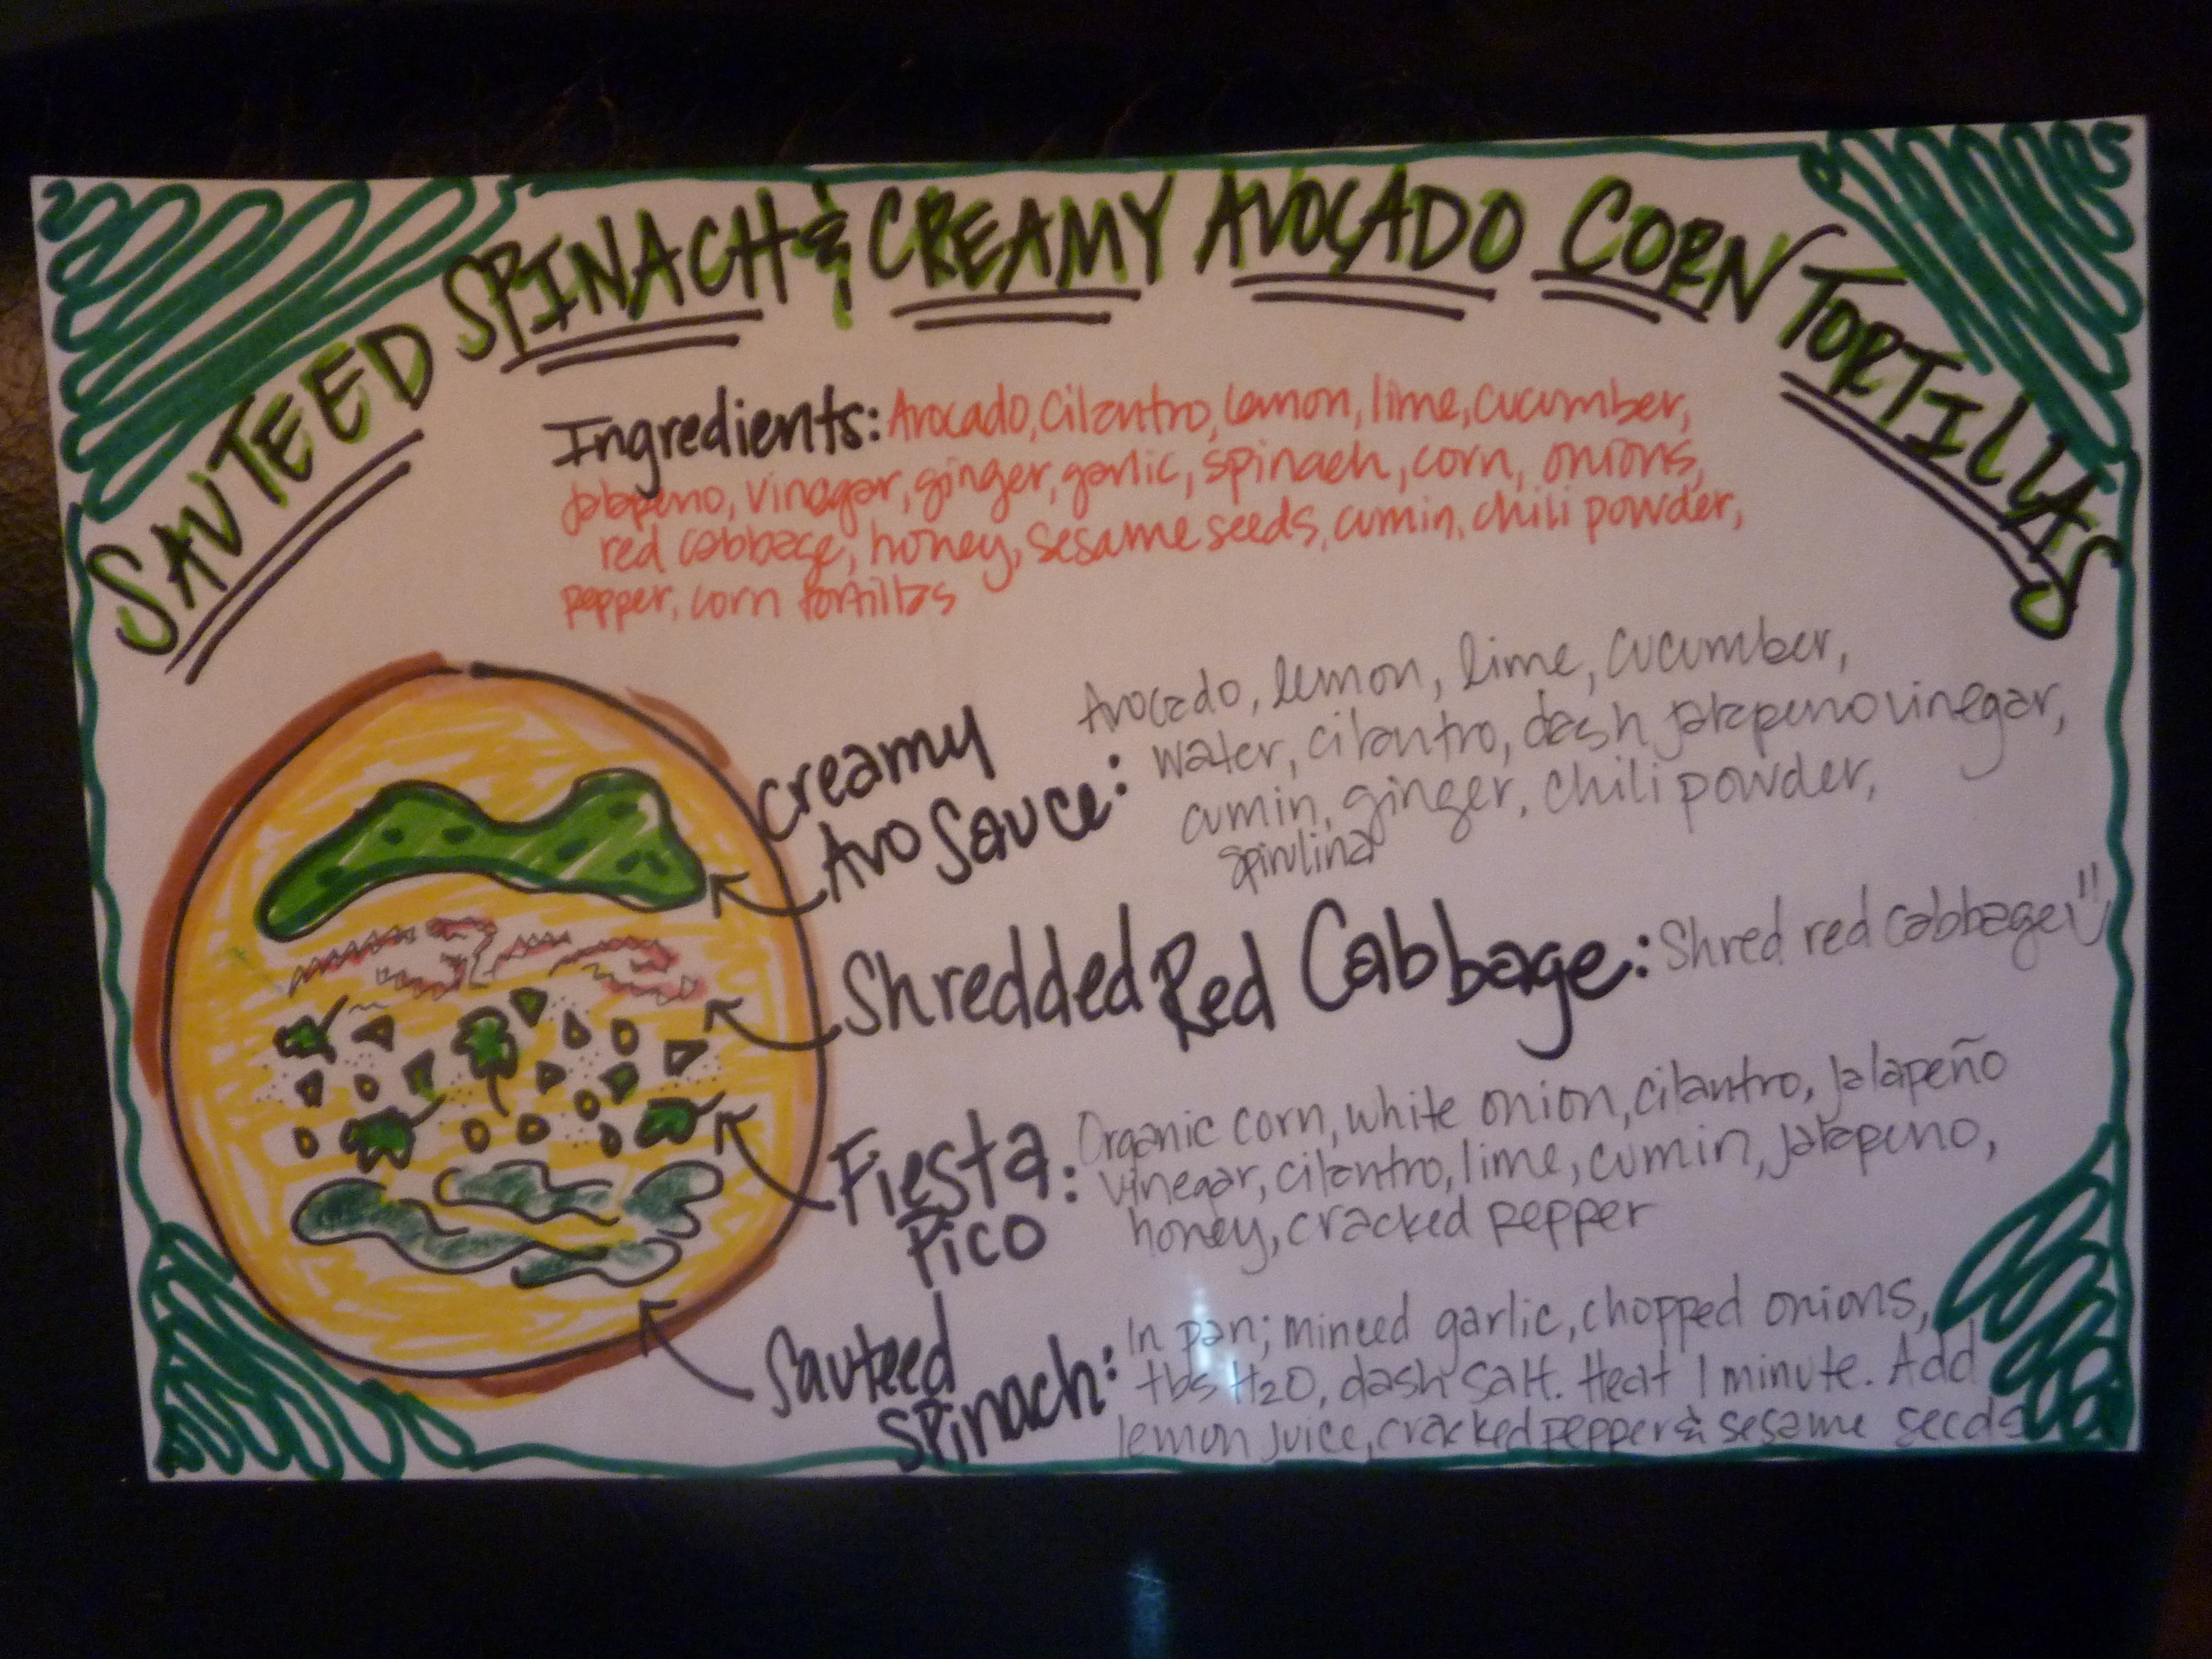 SAUTEED SPINACH & CREAMY AVOCADO CORN TORTILLAS
Ingredients: Avocado, Cilantro, Lemon, lime, cucumber,
Jalapeno, vinegar, ginger, garlic, spinach, corn, onions,
red cabbage, honey, sesame seeds, cumin, chili powder,
pepper, corn tortillas
Creamy
Avo Sauce:
Avocado, lemon, lime, cucumber,
Water, cilantro, dash jalapeno vinegar,
cumin, ginger, chili powder,
spirulina
Shredded Red Cabbage: Shred red cabbage
Fiesta
Pico:
Organic corn, white onion, cilantro, jalapeño
vinegar, cilantro, lime, cumin, jalapeno,
honey, cracked pepper
Sauteed
Spinach:
In pan; minced garlic, chopped onions,
tbs H2O, dash salt. Heat 1 minute. Add
lemon juice, cracked pepper & sesame seeds